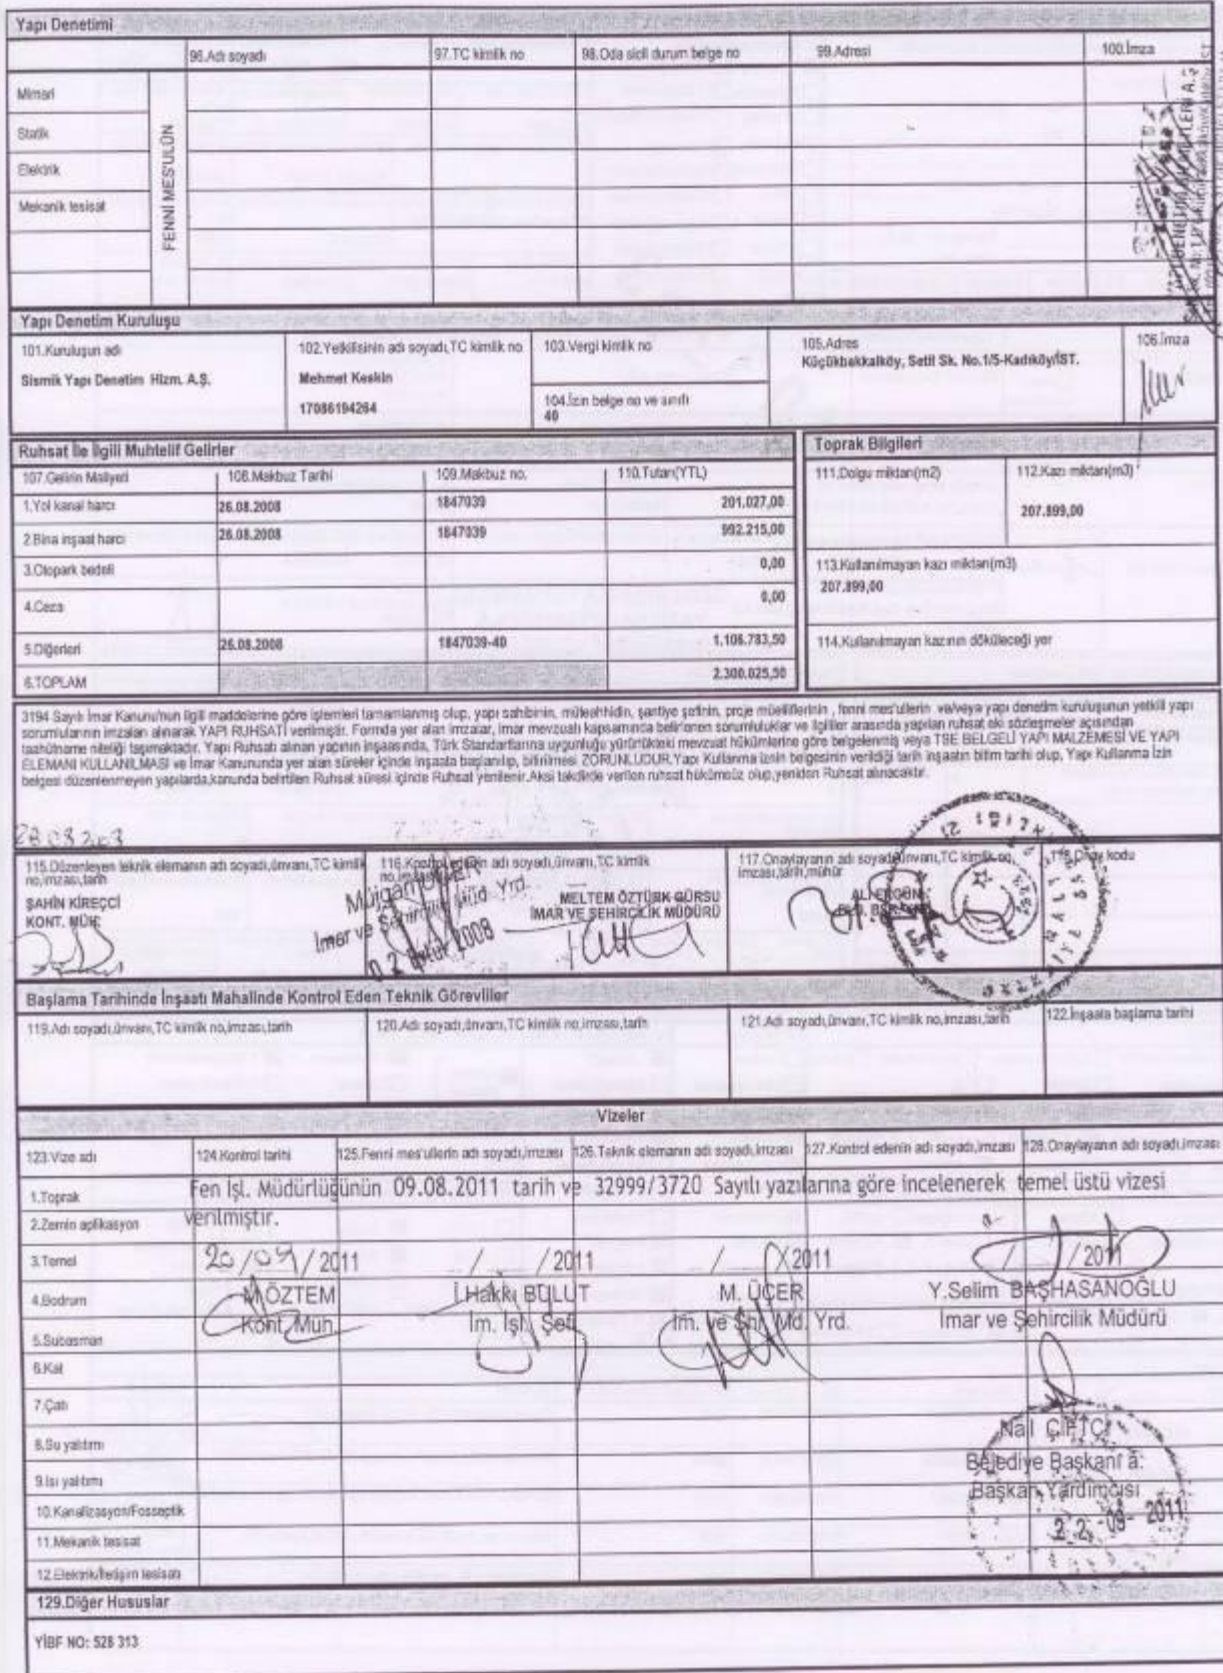 Yapı Denetimi
96.Adı soyadı 97.TC kimlik no 98.Oda sicil durum belge no 99.Adresi 100.İmza
FENNİ MES'ULÜN
Mimari
Statik
Elektrik
Mekanik tesisat
Yapı Denetim Kuruluşu
101.Kuruluşun adı
Sismik Yapı Denetim Hizm. A.Ş.
102.Yetkilisinin adı soyadı,TC kimlik no
Mehmet Keskin
17086194264
103.Vergi kimlik no
104.İzin belge no ve sınıfı
40
105.Adres
Küçükbakkalköy, Setil Sk. No.1/5-Kadıköy/İST.
106.İmza
Ruhsat İle İlgili Muhtelif Gelirler
107.Gelirin Maliyeti 108.Makbuz Tarihi 109.Makbuz no. 110.Tutarı(YTL)
1.Yol kanal harcı 26.08.2008 1847039 201.027,00
2.Bina inşaat harcı 26.08.2008 1847039 992.215,00
3.Otopark bedeli 0,00
4.Ceza 0,00
5.Diğerleri 26.08.2008 1847039-40 1.106.783,50
6.TOPLAM 2.300.025,50
Toprak Bilgileri
111.Dolgu miktarı(m2)
112.Kazı miktarı(m3)
207.899,00
113.Kullanılmayan kazı miktarı(m3)
207.899,00
114.Kullanılmayan kazının döküleceği yer
3194 Sayılı İmar Kanunu'nun ilgili maddelerine göre işlemleri tamamlanmış olup, yapı sahibinin, müteahhidin, şantiye şefinin, proje müelliflerinin , fenni mes'ullerin ve/veya yapı denetim kuruluşunun yetkili yapı
sorumlularının imzaları alınarak YAPI RUHSATI verilmiştir. Formda yer alan imzalar, imar mevzuatı kapsamında belirlenen sorumluluklar ve ilgililer arasında yapılan ruhsat eki sözleşmeler açısından
taahütname niteliği taşımaktadır. Yapı Ruhsatı alınan yapının inşaasında, Türk Standartlarına uygunluğu yürürlükteki mevzuat hükümlerine göre belgelenmiş veya TSE BELGELİ YAPI MALZEMESİ VE YAPI
ELEMANI KULLANILMASI ve İmar Kanununda yer alan süreler içinde inşaata başlanılıp, bitirilmesi ZORUNLUDUR.Yapı Kullanma İznin belgesinin verildiği tarih inşaatın bitim tarihi olup, Yapı Kullanma İzin
belgesi düzenlenmeyen yapılarda,kanunda belirtilen Ruhsat süresi içinde Ruhsat yenilenir.Aksi takdirde verilen ruhsat hükümsüz olup,yeniden Ruhsat alınacaktır.
115.Düzenleyen teknik elemanın adı soyadı,ünvanı,TC kimlik
no,imzası,tarih
ŞAHİN KİREÇCİ
KONT. MÜH.
116.Kontrol edenin adı soyadı,ünvanı,TC kimlik
no,imzası,tarih
İmar ve Şehircilik Müd. Yrd.
0 2 Eylül 2008
MELTEM ÖZTÜRK GÜRSU
İMAR VE ŞEHİRCİLİK MÜDÜRÜ
117.Onaylayanın adı soyadı,ünvanı,TC kimlik no,
imzası,tarih,mühür
118.Onay kodu
ALİ ERGÜN
Başlama Tarihinde İnşaatı Mahalinde Kontrol Eden Teknik Görevliler
119.Adı soyadı,ünvanı,TC kimlik no,imzası,tarih 120.Adı soyadı,ünvanı,TC kimlik no,imzası,tarih 121.Adı soyadı,ünvanı,TC kimlik no,imzası,tarih 122.İnşaata başlama tarihi
Vizeler
123.Vize adı 124.Kontrol tarihi 125.Fenni mes'ullerin adı soyadı,imzası 126.Teknik elemanın adı soyadı,imzası 127.Kontrol edenin adı soyadı,imzası 128.Onaylayanın adı soyadı,imzası
1.Toprak
Fen İşl. Müdürlüğünün 09.08.2011 tarih ve 32999/3720 Sayılı yazılarına göre incelenerek temel üstü vizesi
2.Zemin aplikasyon
verilmiştir.
3.Temel
20/09/2011 / /2011 / /2011 / /2011
4.Bodrum
M.ÖZTEM İ.Hakkı BULUT M. ÜÇER Y.Selim BAŞHASANOĞLU
5.Subasman
Kont. Müh. İm. İşl. Şefi İm. ve Şhr. Md. Yrd. İmar ve Şehircilik Müdürü
6.Kat
7.Çatı
8.Su yalıtımı
9.Isı yalıtımı
10.Kanalizasyon/Fosseptik
11.Mekanik tesisat
12.Elektrik/İletişim tesisatı
Nail ÇİFTÇİ
Belediye Başkanı a:
Başkan Yardımcısı
2 2 -09- 2011
129.Diğer Hususlar
YİBF NO: 528 313